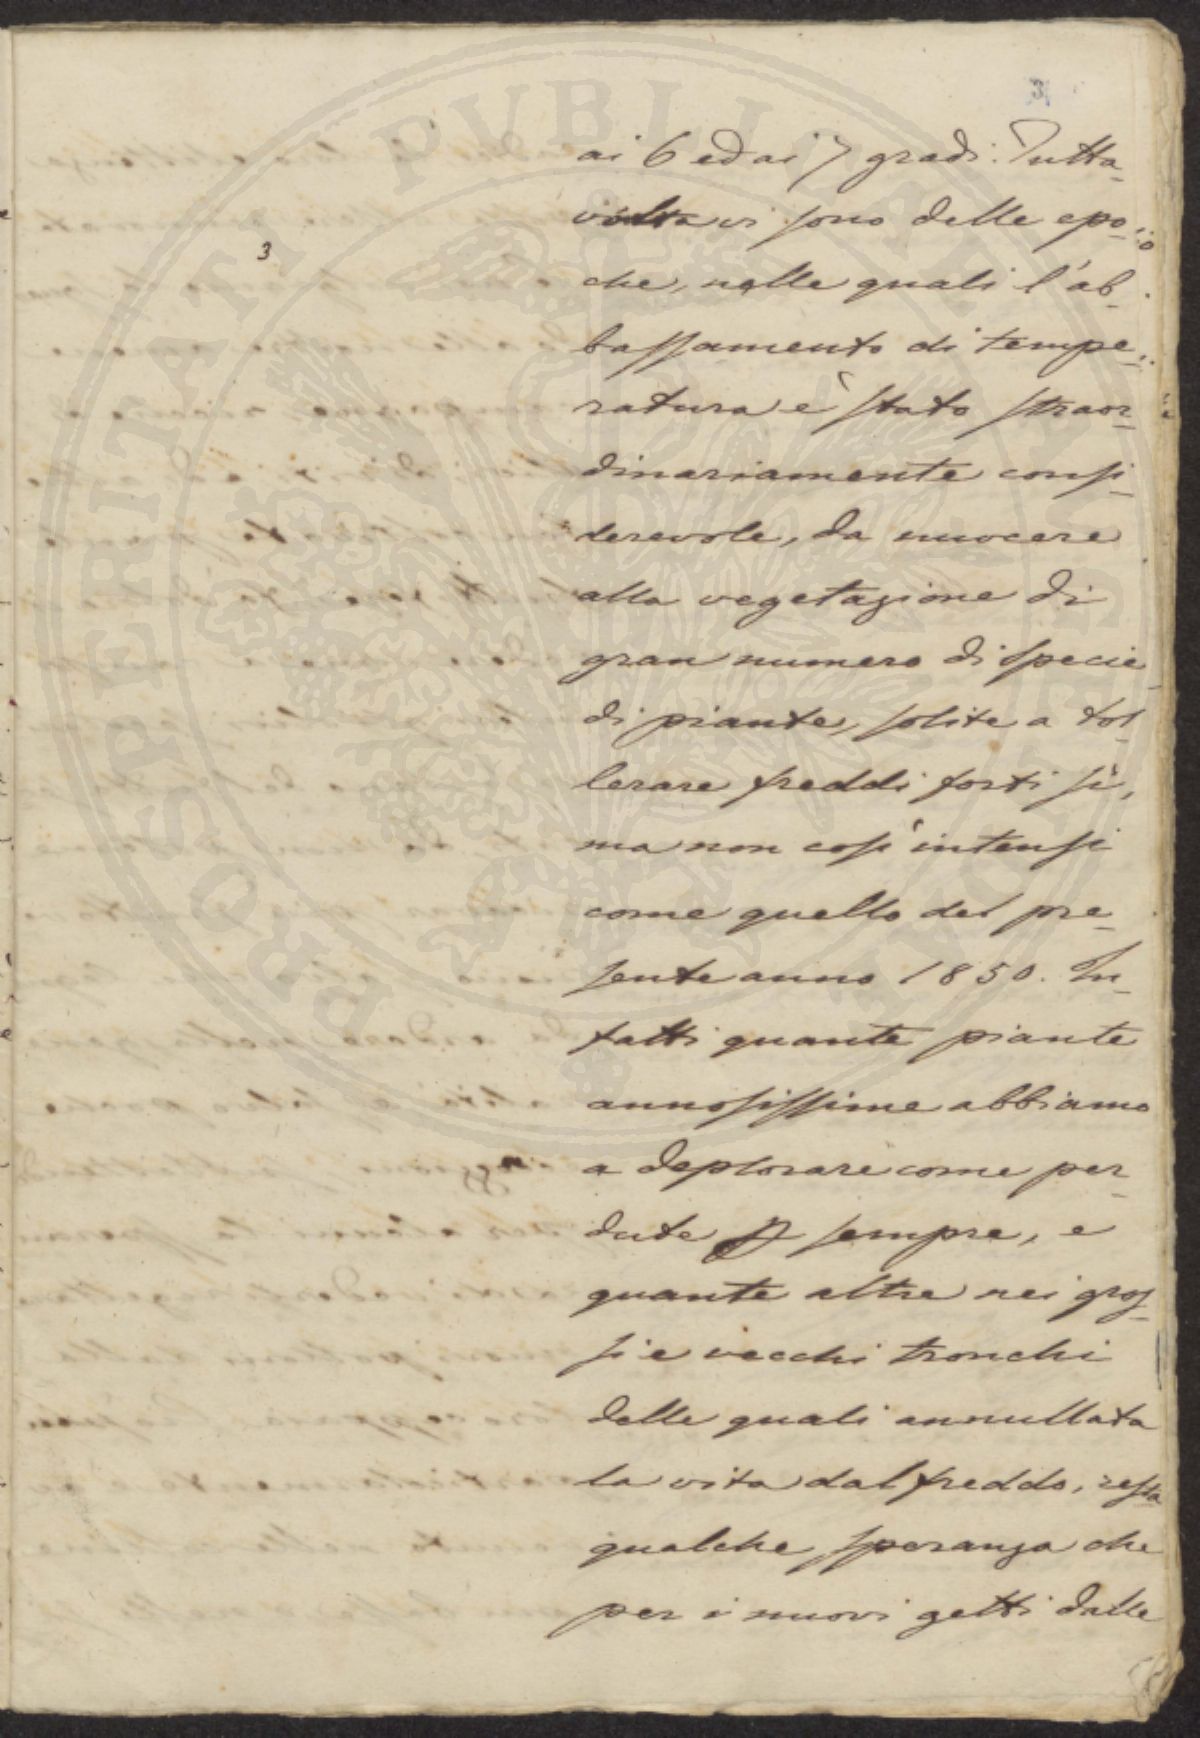 3
3
ai 6 ed ai 7 gradi. Tutta-
volta vi sono delle epo-
che, nelle quali l'ab-
bassamento di tempe-
ratura è stato straor-
dinariamente consi-
derevole, da nuocere
alla vegetazione di
gran numero di specie
di piante, solite a tol-
lerare freddi forti sì,
ma non così intensi
come quello del pre-
sente anno 1850. In-
fatti quante piante
annosissime abbiamo
a deplorare come per-
dute sempre, e
quante altre nei gros-
si e vecchi tronchi
delle quali annullata
la vita dal freddo, resta
qualche speranza che
per i nuovi getti dalle
PROSPERITATI PUBLICAE AUGENDAE